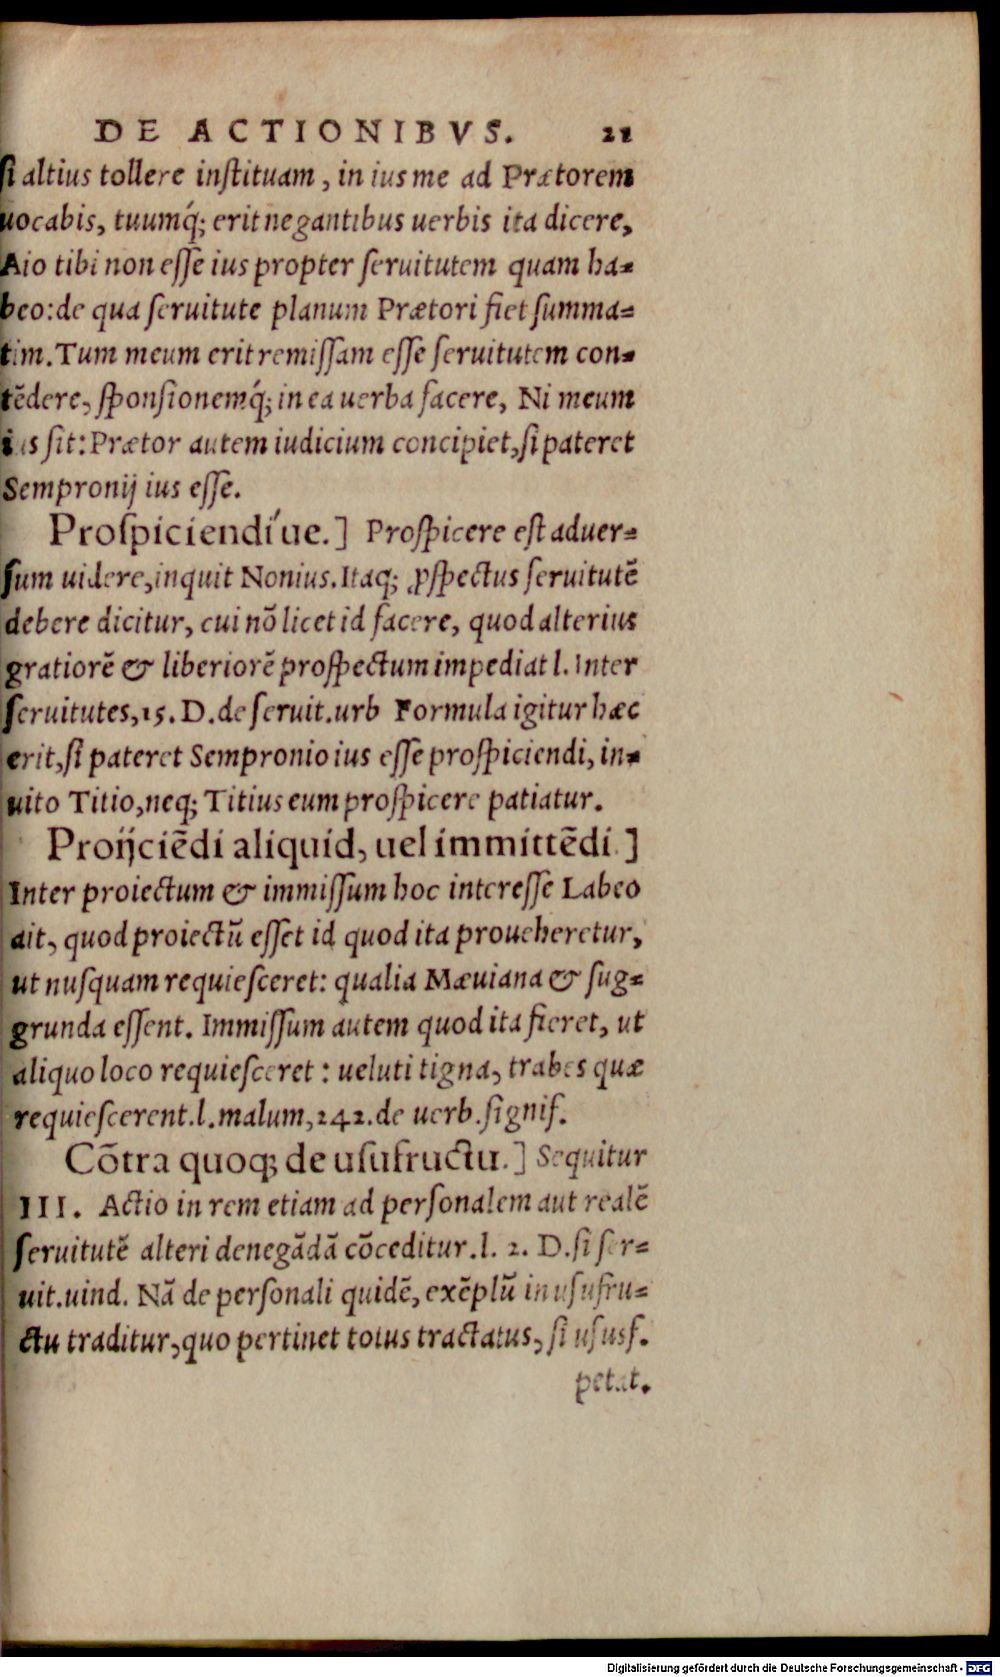 DE ACTIONIBVS. 21
ſi altius tollere inſtituam, in ius me ad Prætorem
uocabis, tuumq́; erit negantibus uerbis ita dicere,
Aio tibi non eſſe ius propter ſeruitutem quam ha-
beo: de qua ſeruitute planum Prætori fiet ſumma-
tim. Tum meum erit remiſſam eſſe ſeruitutem con-
tēdere, ſponſionemq́; in ea uerba facere, Ni meum
ius ſit: Prætor autem iudicium concipiet, ſi pateret
Sempronij ius eſſe.
Proſpiciendi´ue.] Proſpicere eſt aduer-
ſum uidere, inquit Nonius. Itaq; ꝓſpectus ſeruitutē
debere dicitur, cui nō licet id facere, quod alterius
gratiorē & liberiorē proſpectum impediat l. Inter
ſeruitutes, 15. D. de ſeruit. urb Formula igitur hæc
erit, ſi pateret Sempronio ius eſſe proſpiciendi, in-
uito Titio, neq; Titius eum proſpicere patiatur.
Proijciēdi aliquid, uel immittēdi.]
Inter proiectum & immiſſum hoc intereſſe Labeo
ait, quod proiectū eſſet id quod ita proueheretur,
ut nuſquam requieſceret: qualia Mæuiana & ſug-
grunda eſſent. Immiſſum autem quod ita fieret, ut
aliquo loco requieſceret: ueluti tigna, trabes quæ
requieſcerent. l. malum, 242. de uerb. ſignif.
Cōtra quoq; de uſufructu.] Sequitur
III. Actio in rem etiam ad perſonalem aut realē
ſeruitutē alteri denegādā cōceditur. l. 2. D. ſi ſer-
uit. uind. Nā de perſonali quidē, exēplū in uſufru-
ctu traditur, quo pertinet totus tractatus, ſi uſusf.
petat.
Digitalisierung gefördert durch die Deutsche Forschungsgemeinschaft - DFG